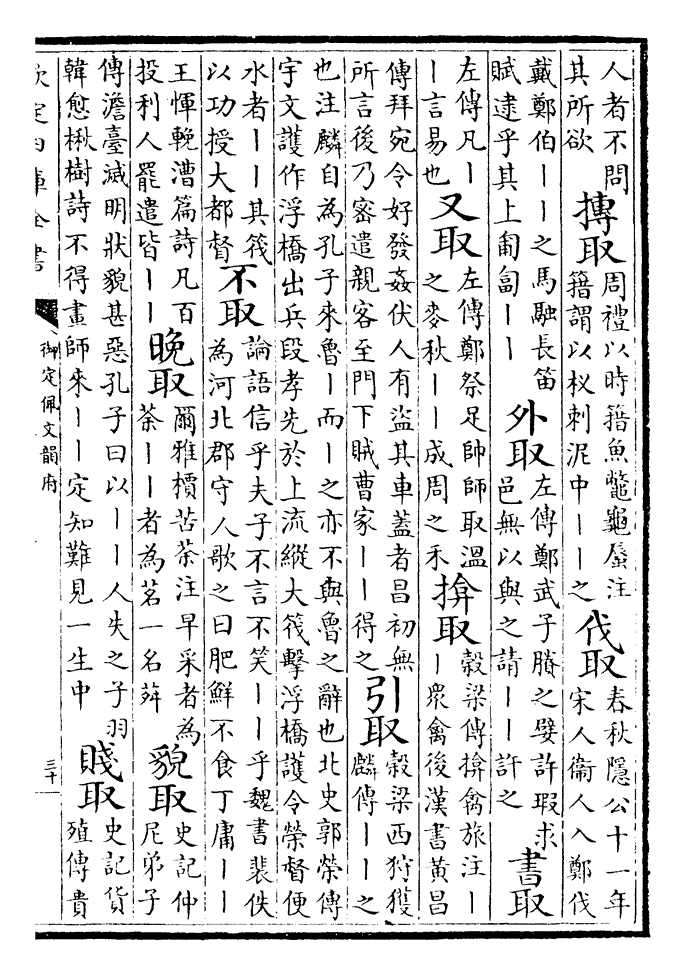 人者不問
其所欲
摶取
周禮以時籍魚鼈龜蜃注
籍謂以杈刺泥中丨丨之
伐取
春秋隱公十一年
宋人衞人入鄭伐
戴鄭伯丨丨之馬融長笛
賦逮乎其上匍匐丨丨
外取
左傳鄭武子賸之嬖許瑕求
邑無以與之請丨丨許之
書取
左傳凡丨
丨言易也
又取
左傳鄭祭足帥師取溫
之麥秋丨丨成周之禾
揜取
榖梁傳揜禽旅注丨
丨衆禽後漢書黃昌
傳拜宛令好發姦伏人有盜其車蓋者昌初無
所言後乃密遣親客至門下賊曹家丨丨得之
引取
榖梁西狩獲
麟傳丨丨之
也注麟自為孔子來魯丨而丨之亦不與魯之辭也北史郭榮傳
宇文護作浮橋出兵段孝先於上流縱大筏擊浮橋護令榮督便
水者丨丨其筏
以功授大都督
不取
論語信乎夫子不言不笑丨丨乎魏書裴佚
為河北郡守人歌之曰肥鮮不食丁庸丨丨
王惲輓漕篇詩凡百
投利人罷遣皆丨丨
晚取
爾雅檟苦荼注早采者為
荼丨丨者為茗一名荈
貌取
史記仲
尼弟子
傳澹臺滅明狀貌甚惡孔子曰以丨丨人失之子羽
韓愈楸樹詩不得畫師來丨丨定知難見一生中
賤取
史記貨
殖傳貴
欽定四庫全書
御定佩文韻府
三十